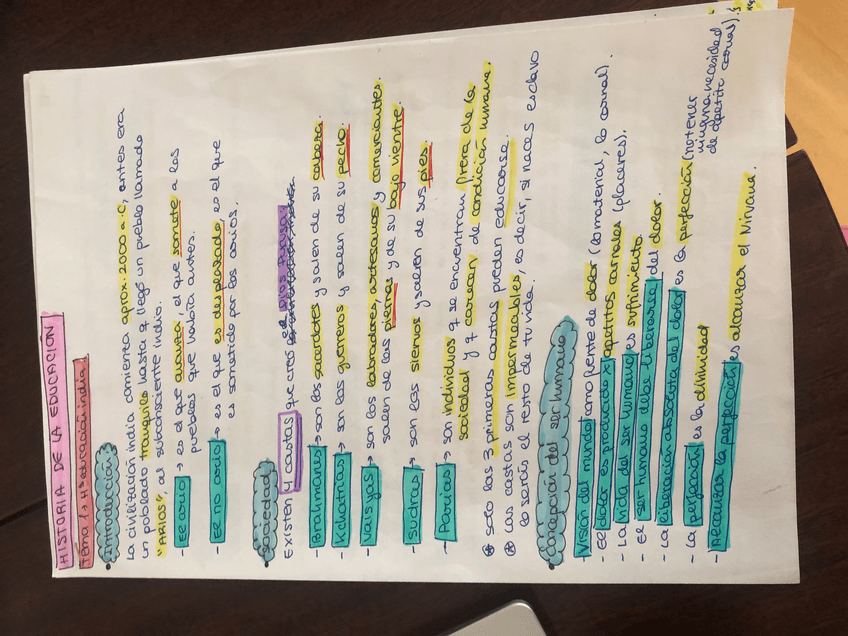 HISTORIA DE LA EDUCACIÓN
Tema 1 → Hª educación india
Introducción
La civilización india comienza aprox. 2000 a.C, antes era
un poblado tranquilo hasta q llegó un pueblo llamado
"ARIOS" al subconsciente indio.
- El ario → es el que avanza, el que somete a los
pueblos que había antes.
- El no ario → es el que es desplazado, es el que
es sometido por los arios.
Sociedad
Existen 4 castas que creó el Dios Purusa
- Brahmanes → son los sacerdotes y salen de su cabeza.
- Kchatrias → son los guerreros y salen de su pecho.
- Vaisyas → son los labradores, artesanos y comerciantes.
salen de las piernas y de su bajo vientre.
- Sudras → son los siervos y salen de sus pies.
- Parias → son individuos q se encuentran fuera de la
sociedad y q carecen de condición humana.
* solo las 3 primeras castas pueden educarse.
* Las castas son impermeables, es decir, si naces esclavo
lo serás el resto de tu vida.
Concepción del ser humano
- Visión del mundo como fuente de dolor (lo material, lo carnal).
- El dolor es producido x apetitos carnales (placeres).
- La vida del ser humano es sufrimiento.
- El ser humano debe liberarse del dolor.
- La liberación absoluta del dolor es la perfección (no tener
ninguna necesidad
de apetito carnal).
- La perfección es la divinidad
- Alcanzar la perfección es alcanzar el Nirvana.